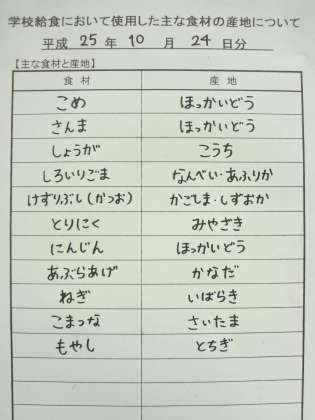 学校給食において使用した主な食材の産地について
平成 25 年 10 月 24 日分
【主な食材と産地】
食材 産地
こめ ほっかいどう
さんま ほっかいどう
しょうが こうち
しろいりごま なんべい・あふりか
けずりぶし(かつお) かごしま・しずおか
とりにく みやざき
にんじん ほっかいどう
あぶらあげ かなだ
ねぎ いばらき
こまつな さいたま
もやし とちぎ